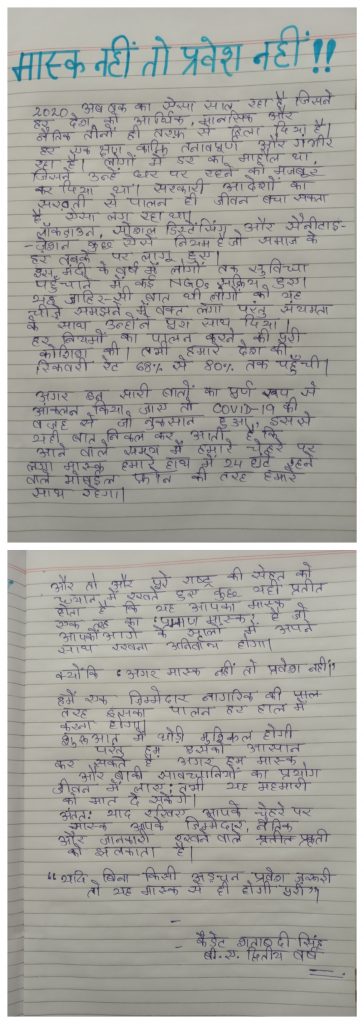 मास्क नहीं तो प्रवेश नहीं !!
2020 अब तक का ऐसा साल रहा है, जिसने
हर देश को आर्थिक, मानसिक और
नैतिक तीनों ही तरफ से हिला दिया है।
हर एक क्षण काफी तनावपूर्ण और गंभीर
रहा है। लोगों में डर का माहौल था,
जिसने उन्हें घर पर रहने को मजबूर
कर दिया था। सरकारी आदेशों का
सख्ती से पालन ही जीवन बचा सकता
है ऐसा लग रहा था।
लॉकडाउन, सोशल डिस्टेंसिंग और सैनीटाइ-
-जेशन कुछ ऐसे नियम है जो समाज के
हर तबके पर लागू हुए।
इस मंदी के वर्ष में लोगों तक सुविधा
पहुँचाने में कई NGOs सक्रिय हुए।
यह जाहिर-सी बात थी लोगों को यह
चीजें समझने में वक्त लगा परंतु संयमता
के साथ उन्होंने पूरा साथ दिया।
हर नियमों का पालन करने की पूरी
कोशिश की। तभी हमारे देश की
रिकवरी रेट 68% से 80% तक पहुँची।
अगर इन सारी बातों का पूर्ण रूप से
आंकलन किया जाए तो COVID-19 की
वजह से जो नुकसान हुआ, इससे
यही बात निकल कर आती है कि
आने वाले समय में हमारे चेहरे पर
लगा मास्क हमारे हाथ में 24 घंटे रहने
वाले मोबाईल फ़ोन की तरह हमारे
साथ रहेगा।
और तो और पूरे राष्ट्र की सेहत को
ध्यान में रखते हुए कुछ यही प्रतीत
होता है कि यह आपका मास्क
एक तरह का 'प्रमाण मास्क' है जो
आपको आगे के सालों में अपने
साथ रखना अनिवार्य होगा।
क्योंकि 'अगर मास्क नहीं तो प्रवेश नहीं'
हमें एक जिम्मेदार नागरिक की
तरह इसका पालन हर हाल में
करना होगा।
शुरुआत में थोड़ी मुश्किल होगी
परंतु हम इसको आसान
कर सकते है अगर हम मास्क
और बाकी सावधानियों का प्रयोग
जीवन में लाए। तभी यह महामारी
को मात दे सकेंगे।
अंततः याद रखिए आपके चेहरे पर
मास्क आपके जिम्मेदार, नैतिक
और जानकारी रखने वाले
को झलकाता है।
"यदि बिना किसी अड़चन प्रवेश जरूरी
तो यह मास्क से ही होगी पूरी"।
-
- कैडेट शताब्दी सिंह
बी.ए. द्वितीय वर्ष